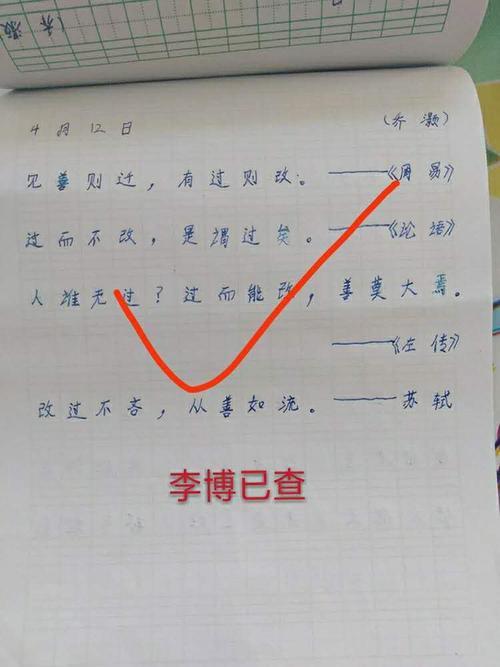 (乔灏)
4月12日 (乔灏)
见善则迁，有过则改。——《周易》
过而不改，是谓过矣。——《论语》
人谁无过？过而能改，善莫大焉。
——《左传》
改过不吝，从善如流。——苏轼
李博已查